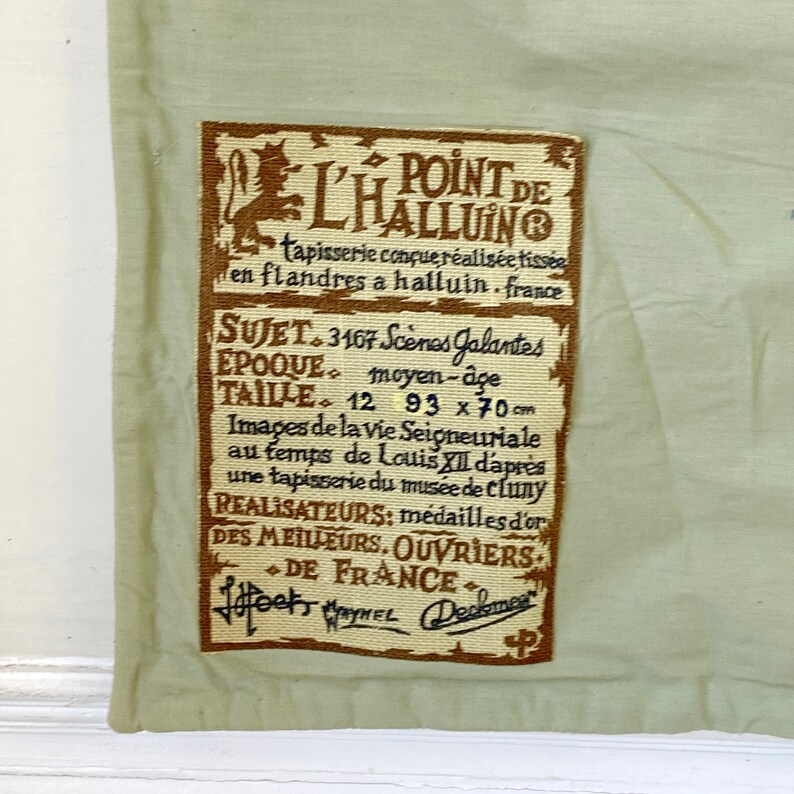 POINT DE
L'HALLUIN®
tapisserie conçue, réalisée, tissée
en flandres a halluin . france
SUJET. 3167 Scènes Galantes
EPOQUE. moyen-âge
TAILLE. 12 93 x 70 cm
Images de la vie Seigneuriale
au temps de Louis XII d'après
une tapisserie du musée de Cluny
REALISATEURS: médailles d'or
DES MEILLEURS. OUVRIERS.
. DE FRANCE .
Deckmeer